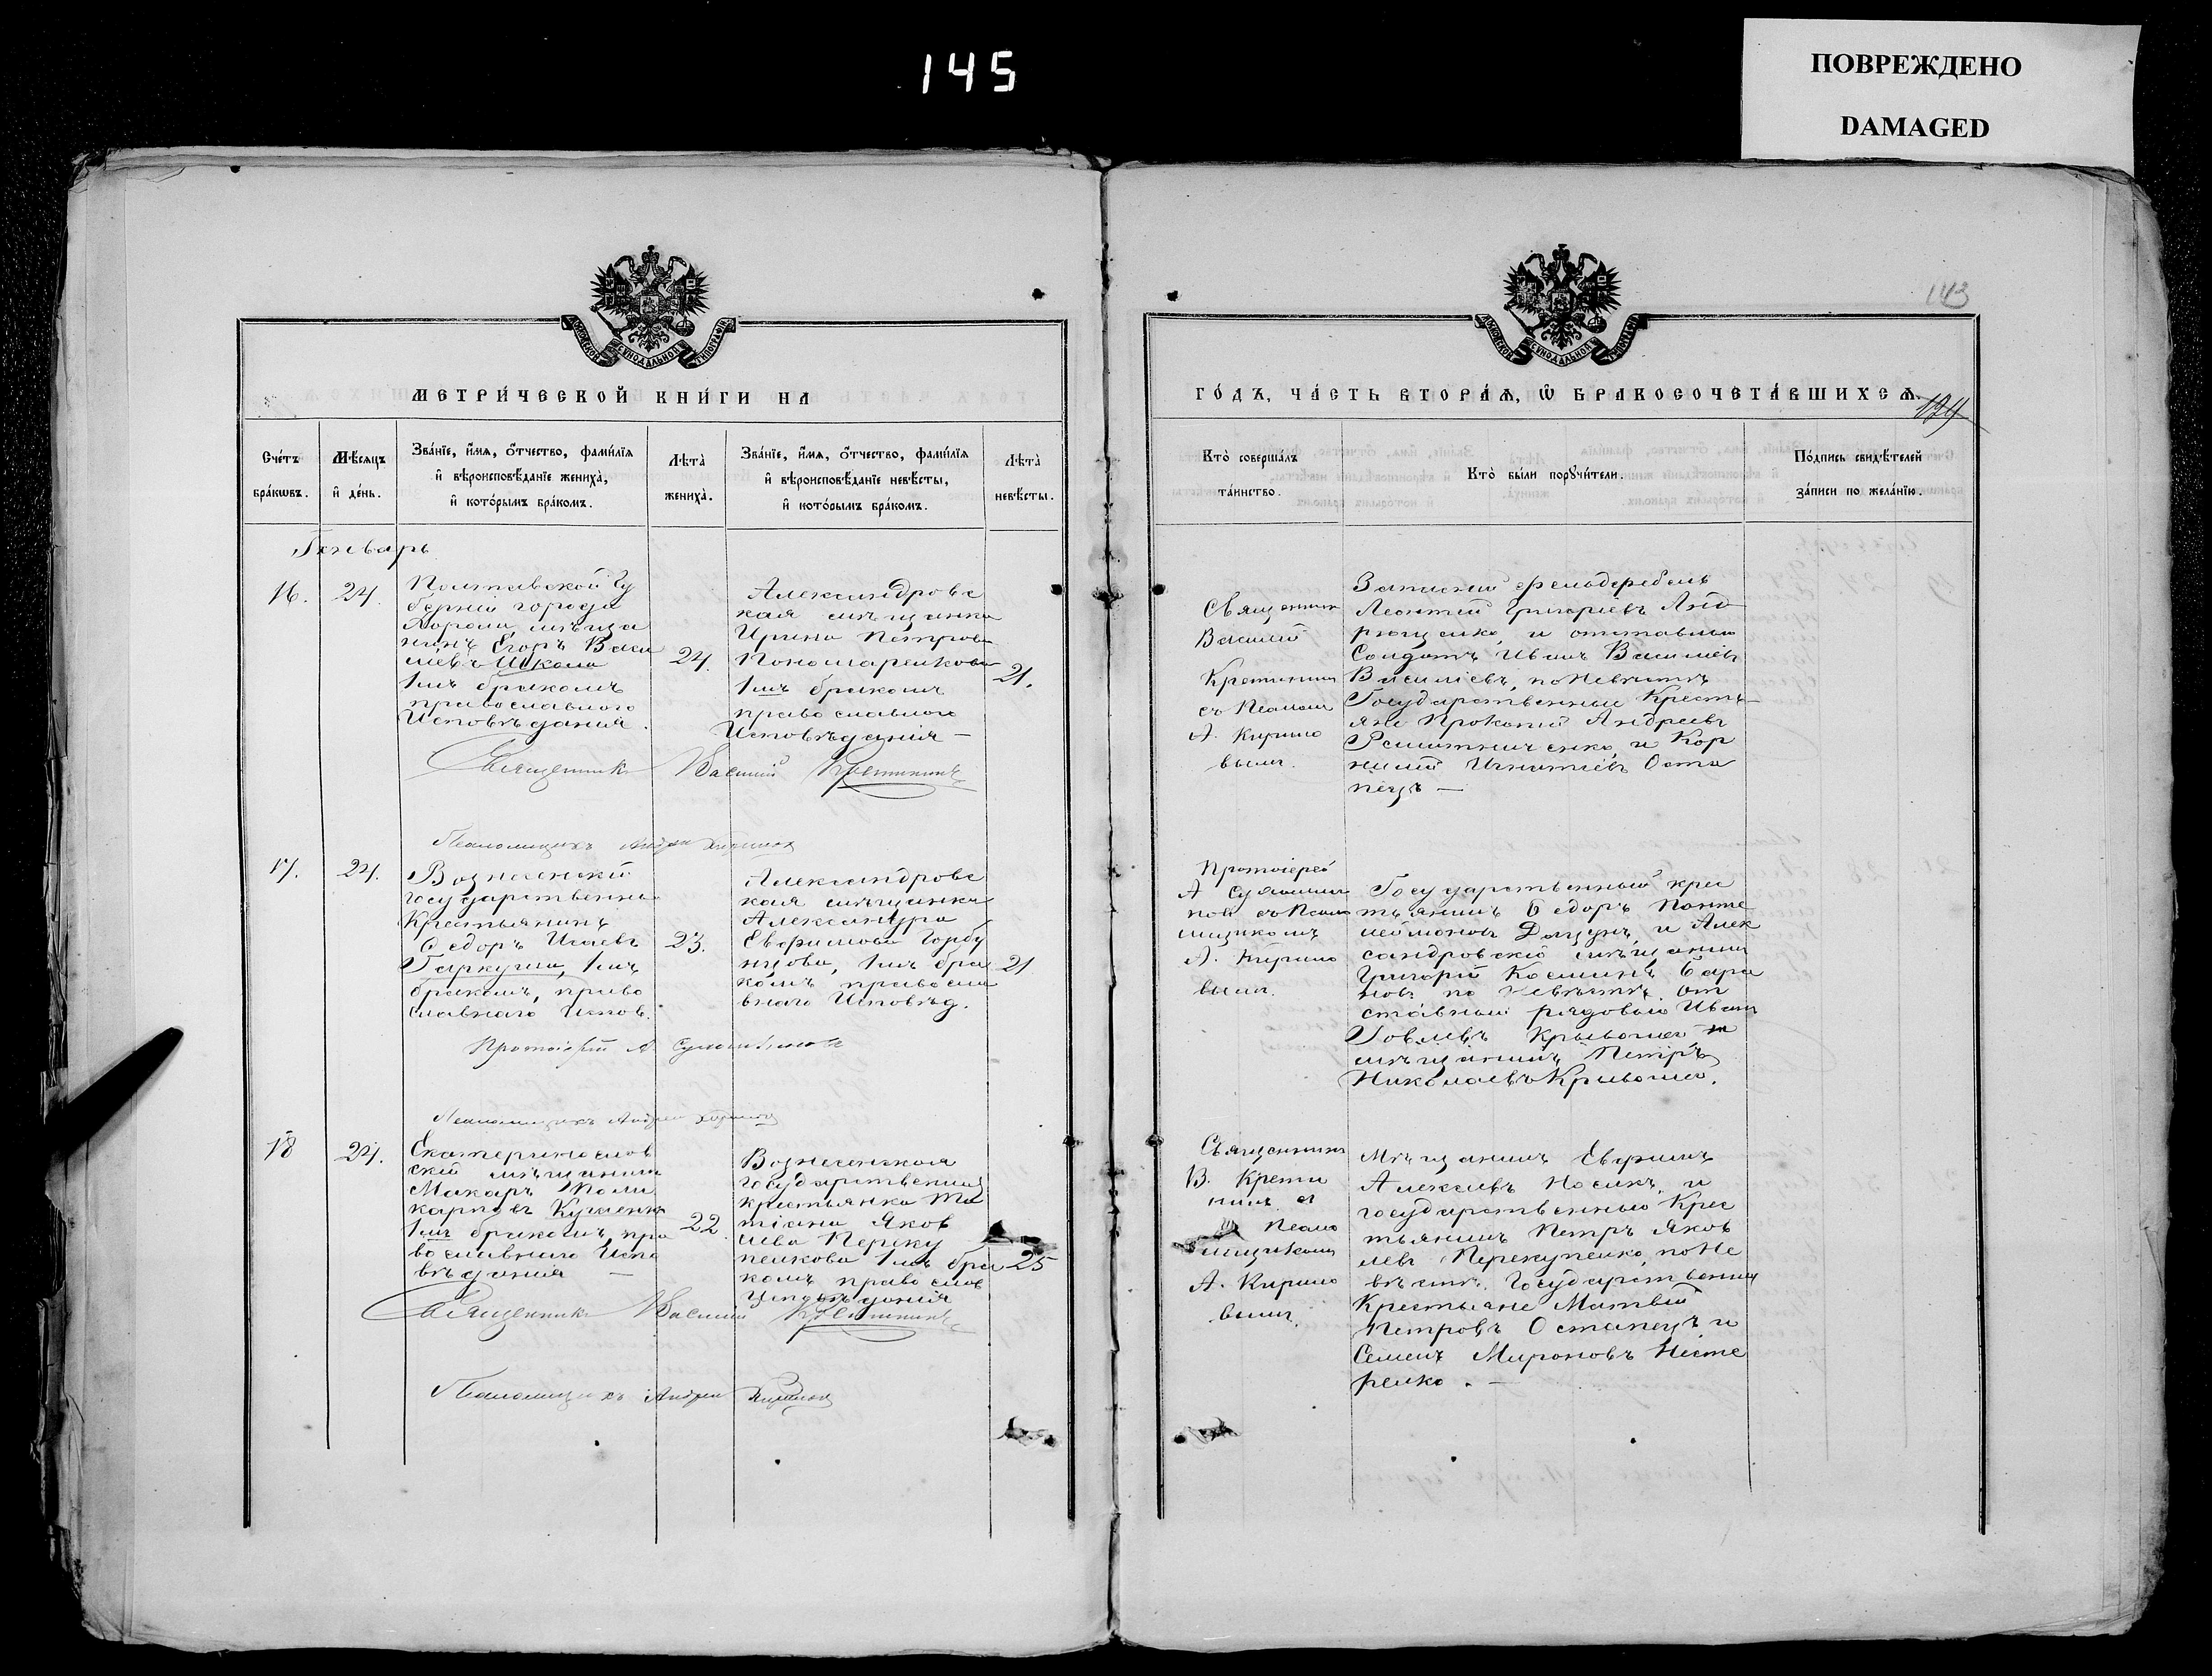 145
ПОВРЕЖДЕНО
DAMAGED
МОСКОВСКОЙ СѴНОДАЛЬНОЙ ТИПОГРАФІИ
МЕТРИ́ЧЕСКОЙ КНИ́ГИ НА
Сче́тъ бра́кѡвъ.
Мѣ́сяцъ и҆ де́нь.
Зва́нїе, и҆́мѧ, о҆́тчество, фами́лїѧ
и҆ вѣроисповѣ́данїе жениха̀,
и҆ кото́рымъ бра́комъ.
Лѣта̀ жениха̀.
Зва́нїе, и҆́мѧ, о҆́тчество, фами́лїѧ
и҆ вѣроисповѣ́данїе невѣ́сты,
и҆ кото́рымъ бра́комъ.
Лѣта̀ невѣ́сты.
Генварь
16.
24.
Полтавской Гу
берніи города
Хорола мѣща
нинъ Егоръ Васи
ліевъ Шкала
1мъ бракомъ
православного
Исповѣданія.
24.
Александровс
кая мѣщанка
Ирина Петрова
Пономаренкова
1мъ бракомъ
православного
Исповѣданія —
21.
Священникъ Василій Кретининъ
Псаломщикъ Андрей Кирилов
17.
24.
Вознесенскій
государственны
Крестьянинъ
Федоръ Исаевъ
Гаркуша, 1мъ
бракомъ, право
славнаго Испов.
23.
Александровс
кая мѣщанка
Александра
Евфимова Горбу
нцова, 1мъ бра
комъ православ
внаго Исповѣд.
21
Протоіерей А
Псаломщикъ Андрей Кирилов
18
24.
Екатеринослов
скій мѣщанинъ
Макаръ Поли
карповъ
1мъ бракомъ, пра
вославнаго Испо
вѣданія —
22.
Вознесенская
государственная
крестьянка Та
тіана Яков
лева Переку
пенкова 1мъ бра
комъ православ
Исповѣданія
25
Священникъ Василій Кретининъ
Псаломщикъ Андрей Кирилов
143
МОСКОВСКОЙ СѴНОДАЛЬНОЙ ТИПОГРАФІИ
ГО́ДЪ, ЧА́СТЬ ВТОРА́Ѧ, Ѡ҆ БРАКОСОЧЕТА́ВШИХСѦ.
124
Кто̀ соверша́лъ
та́инство.
Кто̀ бы́ли порꙋчи́тели.
По́дпись свидѣ́телей
за́писи по жела́нїю.
Священник
Василій
Кретинин
съ Псалом
А. Кирило
вымъ.
Запасной фельдфебель
Леонтій Григоріевъ Анд
рющенко, и отставной
Солдатъ Иванъ Василіевъ
Василіевъ, по Невѣстѣ
Государственные Кресть
яне Прокопій Андреевъ
и Кор
нилій Игнатіевъ Оста
пецъ —
Протоіерей
А
новъ съ Псало
мщикомъ
А. Кирило
вымъ.
Государственный крес
тьянинъ Федоръ Панте
леймоновъ Доцунъ, и Алек
сандровскій мѣщанин
Григорій Косминъ Бара
новъ по невѣстѣ. От
ставный рядовый Иванъ
Крывошея и
мѣщанинъ Петръ
Николаевъ Крывошея.
Священникъ
В. Крети
нинъ съ
Псало
мщикомъ
А. Кирило
вымъ.
Мѣщанинъ Евфимъ
Алексіевъ Носикъ, и
государственный Крес
тьянинъ Петръ Яков
левъ Перекупенко, по Не
вѣстѣ. Государственныя
Крестьяне Матвій
Петровъ Остапецъ и
Семенъ Мироновъ Несте
ренко. —